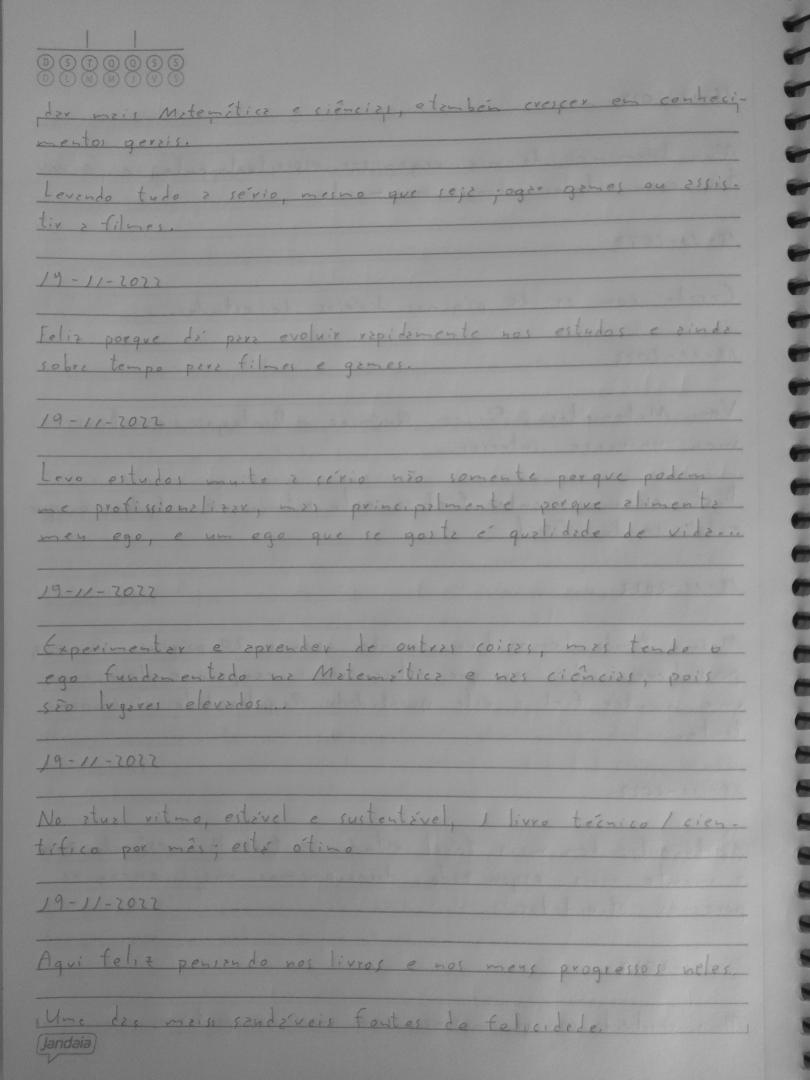 D S T Q Q S S
D L M M J V S
dar mais Matemática e ciências, e também crescer em conheci-
mentos gerais.
Levando tudo a sério, mesmo que seja jogar games ou assis-
tir a filmes.
19-11-2022
Feliz porque dá para evoluir rapidamente nos estudos e ainda
sobra tempo para filmes e games.
19-11-2022
Levo estudos muito a sério não somente porque podem
me profissionalizar, mas principalmente porque alimenta
meu ego, e um ego que se gosta é qualidade de vida...
19-11-2022
Experimentar e aprender de outras coisas, mas tendo o
ego fundamentado na Matemática e nas ciências, pois
são lugares elevados...
19-11-2022
No atual ritmo, estável e sustentável, 1 livro técnico / cien-
tífico por mês; está ótimo
19-11-2022
Aqui feliz pensando nos livros e nos meus progressos neles.
Uma das mais saudáveis fontes de felicidade.
jandaia